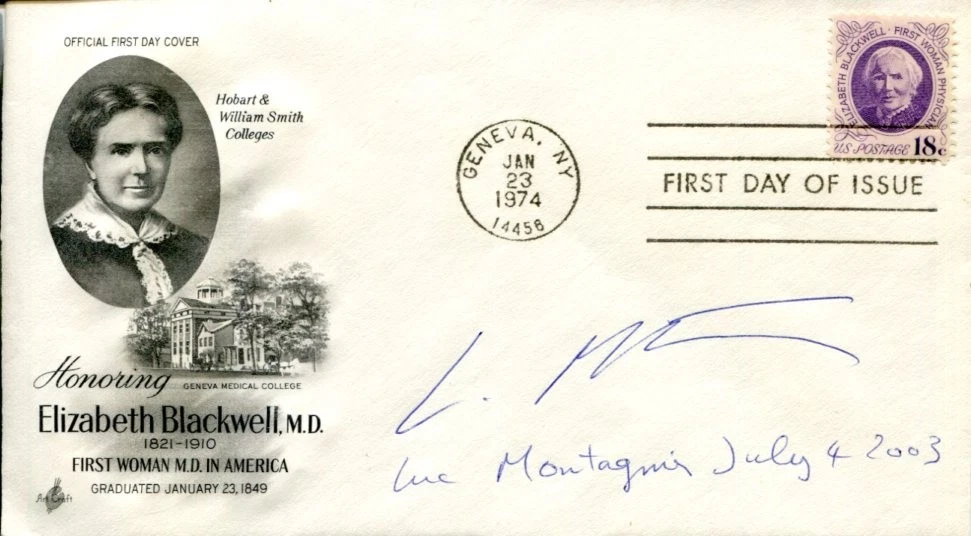 OFFICIAL FIRST DAY COVER
Hobart &
William Smith
Colleges
ELIZABETH BLACKWELL · FIRST WOMAN PHYSICIAN
U.S. POSTAGE 18c
GENEVA, NY
JAN
23
1974
14456
FIRST DAY OF ISSUE
Honoring
GENEVA MEDICAL COLLEGE
Elizabeth Blackwell, M.D.
1821-1910
FIRST WOMAN M.D. IN AMERICA
GRADUATED JANUARY 23, 1849
ArtCraft
Luc Montagnier July 4 2003